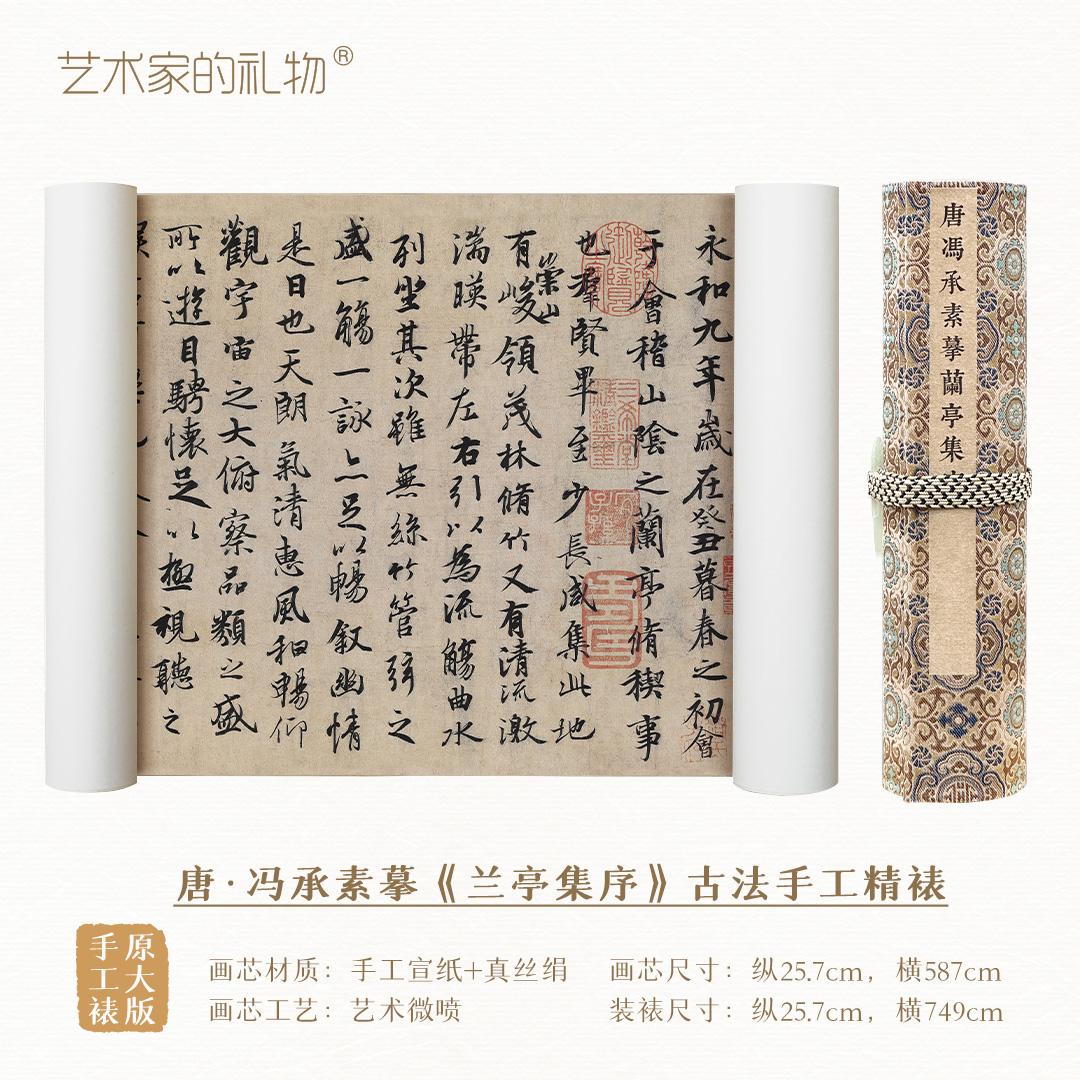 艺术家的礼物®
永和九年歲在癸丑暮春之初會
于會稽山陰之蘭亭脩稧事
也羣賢畢至少長咸集此地
有崇山峻領茂林脩竹又有清流激
湍暎帶左右引以為流觴曲水
列坐其次雖無絲竹管弦之
盛一觴一詠亦足以暢敘幽情
是日也天朗氣清惠風和暢仰
觀宇宙之大俯察品類之盛
所以遊目騁懷足以極視聽之
唐馮承素摹蘭亭集序
唐·冯承素摹《兰亭集序》古法手工精裱
原大版
手工裱
画芯材质：手工宣纸+真丝绢
画芯工艺：艺术微喷
画芯尺寸：纵25.7cm，横587cm
装裱尺寸：纵25.7cm，横749cm